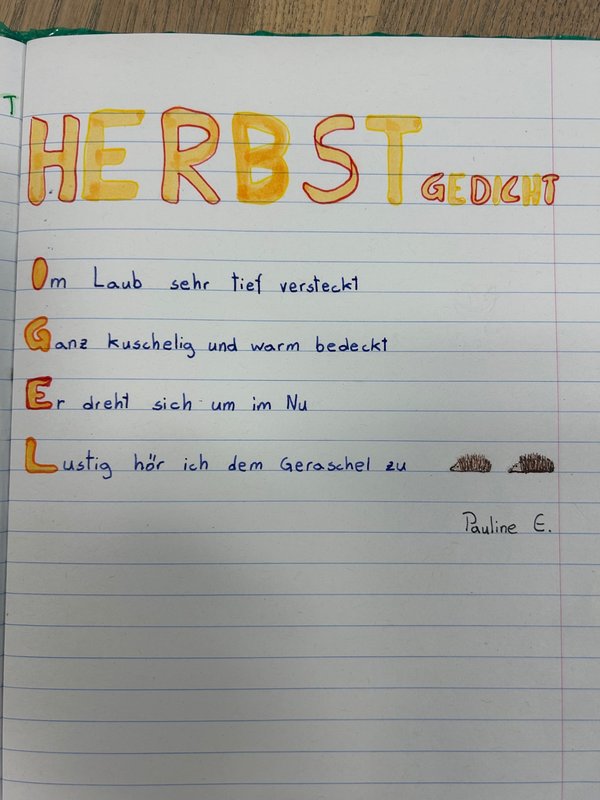 T
HERBST GEDICHT
Im Laub sehr tief versteckt
Ganz kuschelig und warm bedeckt
Er dreht sich um im Nu
Lustig hör ich dem Geraschel zu
Pauline E.